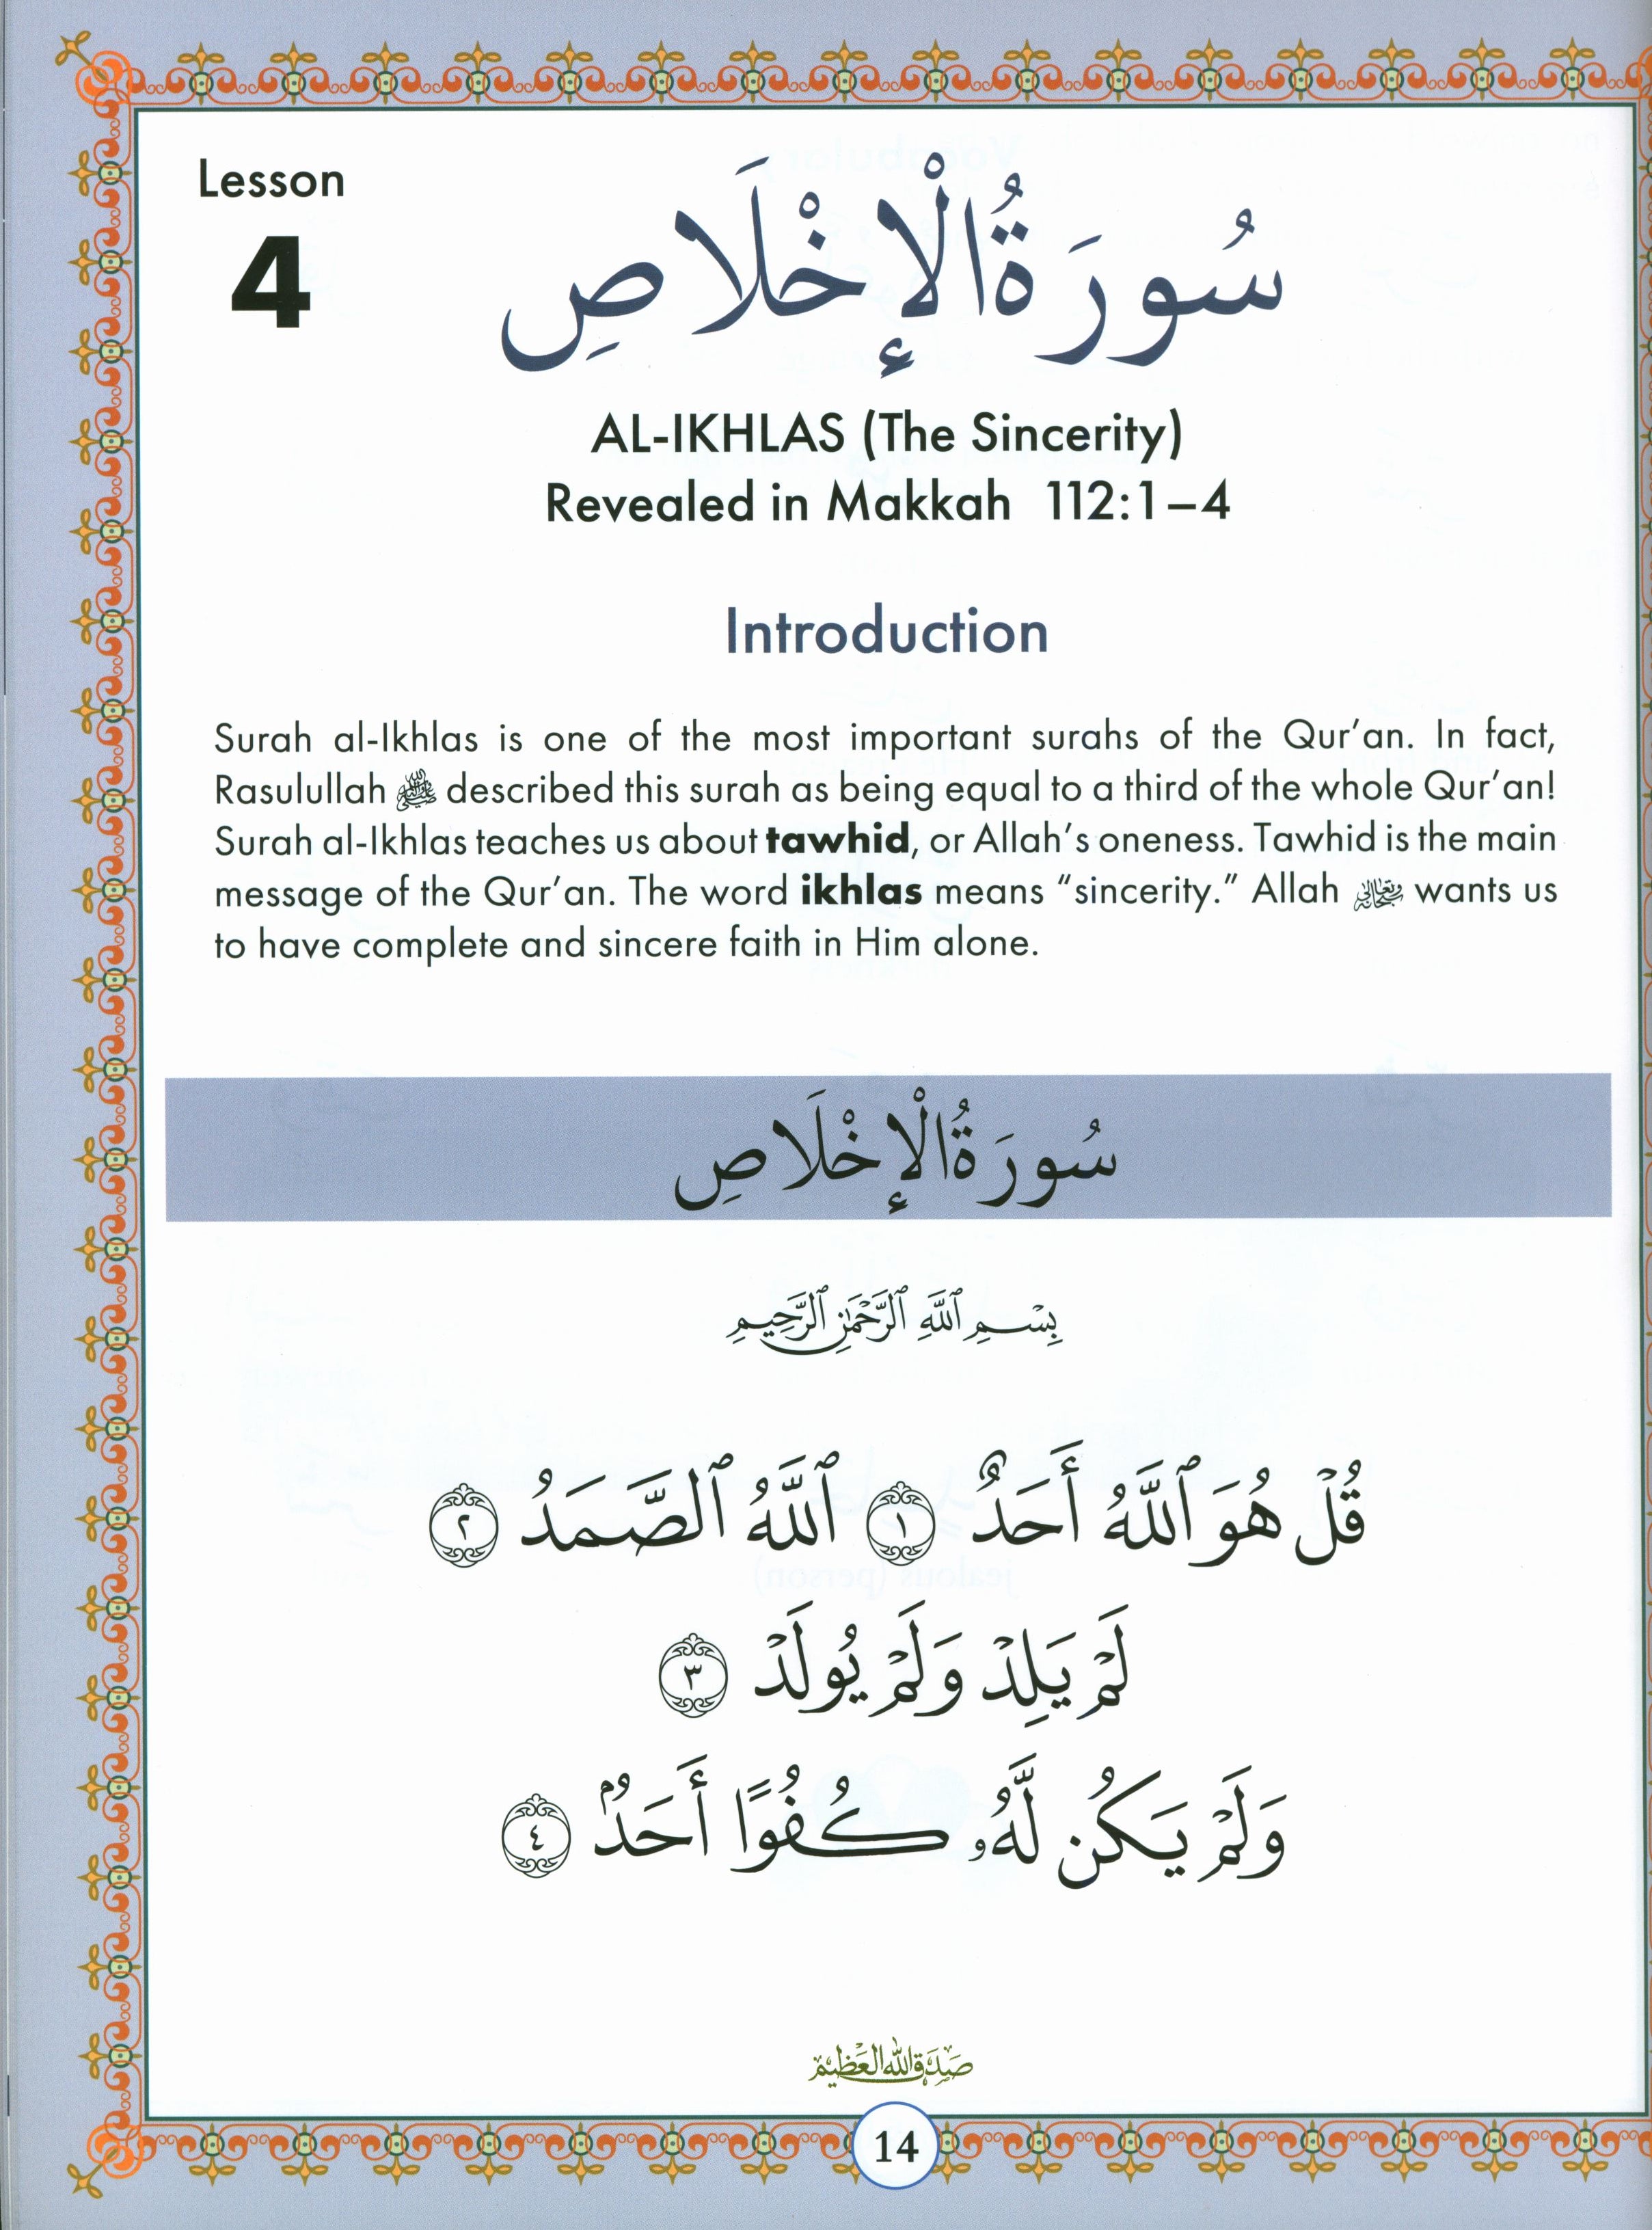 Lesson
4
سُورَةُ الْإِخْلَاصِ
AL-IKHLAS (The Sincerity)
Revealed in Makkah 112:1–4
Introduction
Surah al-Ikhlas is one of the most important surahs of the Qur’an. In fact,
Rasulullah ﷺ described this surah as being equal to a third of the whole Qur’an!
Surah al-Ikhlas teaches us about tawhid, or Allah’s oneness. Tawhid is the main
message of the Qur’an. The word ikhlas means “sincerity.” Allah سُبْحَانَهُ وَتَعَالَىٰ wants us
to have complete and sincere faith in Him alone.
سُورَةُ الْإِخْلَاصِ
بِسْمِ ٱللَّهِ ٱلرَّحْمَٰنِ ٱلرَّحِيمِ
قُلْ هُوَ ٱللَّهُ أَحَدٌ ١ ٱللَّهُ ٱلصَّمَدُ ٢
لَمْ يَلِدْ وَلَمْ يُولَدْ ٣
وَلَمْ يَكُن لَّهُۥ كُفُوًا أَحَدٌۢ ٤
صَدَقَ اللهُ الْعَظِيم
14